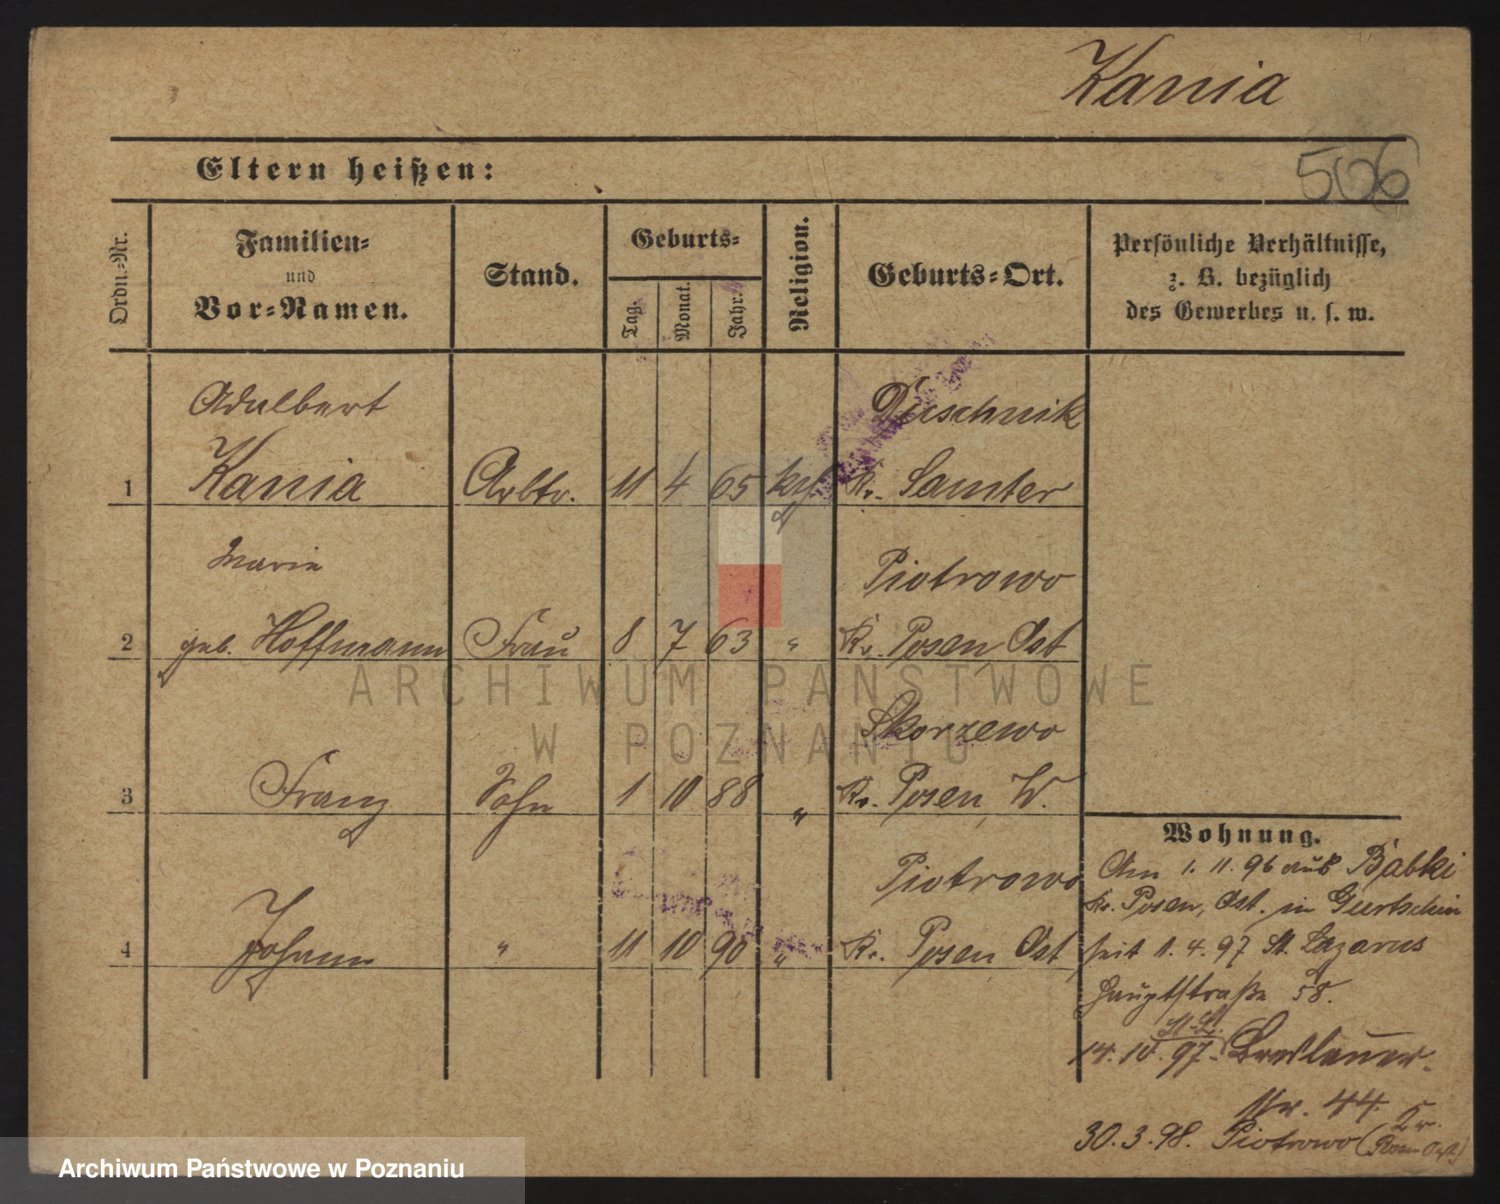 Kania
Eltern heißen:
506
Ordn.-Nr.
Familien-
und
Vor-Namen.
Stand.
Geburts-
Tag.
Monat.
Jahr.
Religion.
Geburts-Ort.
Persönliche Verhältnisse,
z. B. bezüglich
des Gewerbes u. s. w.
Adalbert Duschnik
1 Kania Arbtr. 11 4 65 kth Kr. Samter
Marie Piotrowo
2 geb. Hoffmann Frau 8 7 63 " Kr. Posen Ost
Skorzewo
3 Franz Sohn 1 10 88 " Kr. Posen, W.
Piotrowo
4 Johann " 11 10 90 " Kr. Posen Ost
Wohnung.
Am 1. 11. 96 aus Babki
Kr. Posen, Ost. in Gurtschin
seit 1. 4. 97 St. Lazarus
Hauptstraße 58.
St. L.
14. 10. 97. Breslauer-
Nr. 44.
30. 3. 98. Piotrowo (Kr. Posen Ost)
ARCHIWUM PAŃSTWOWE
W POZNANIU
Archiwum Państwowe w Poznaniu